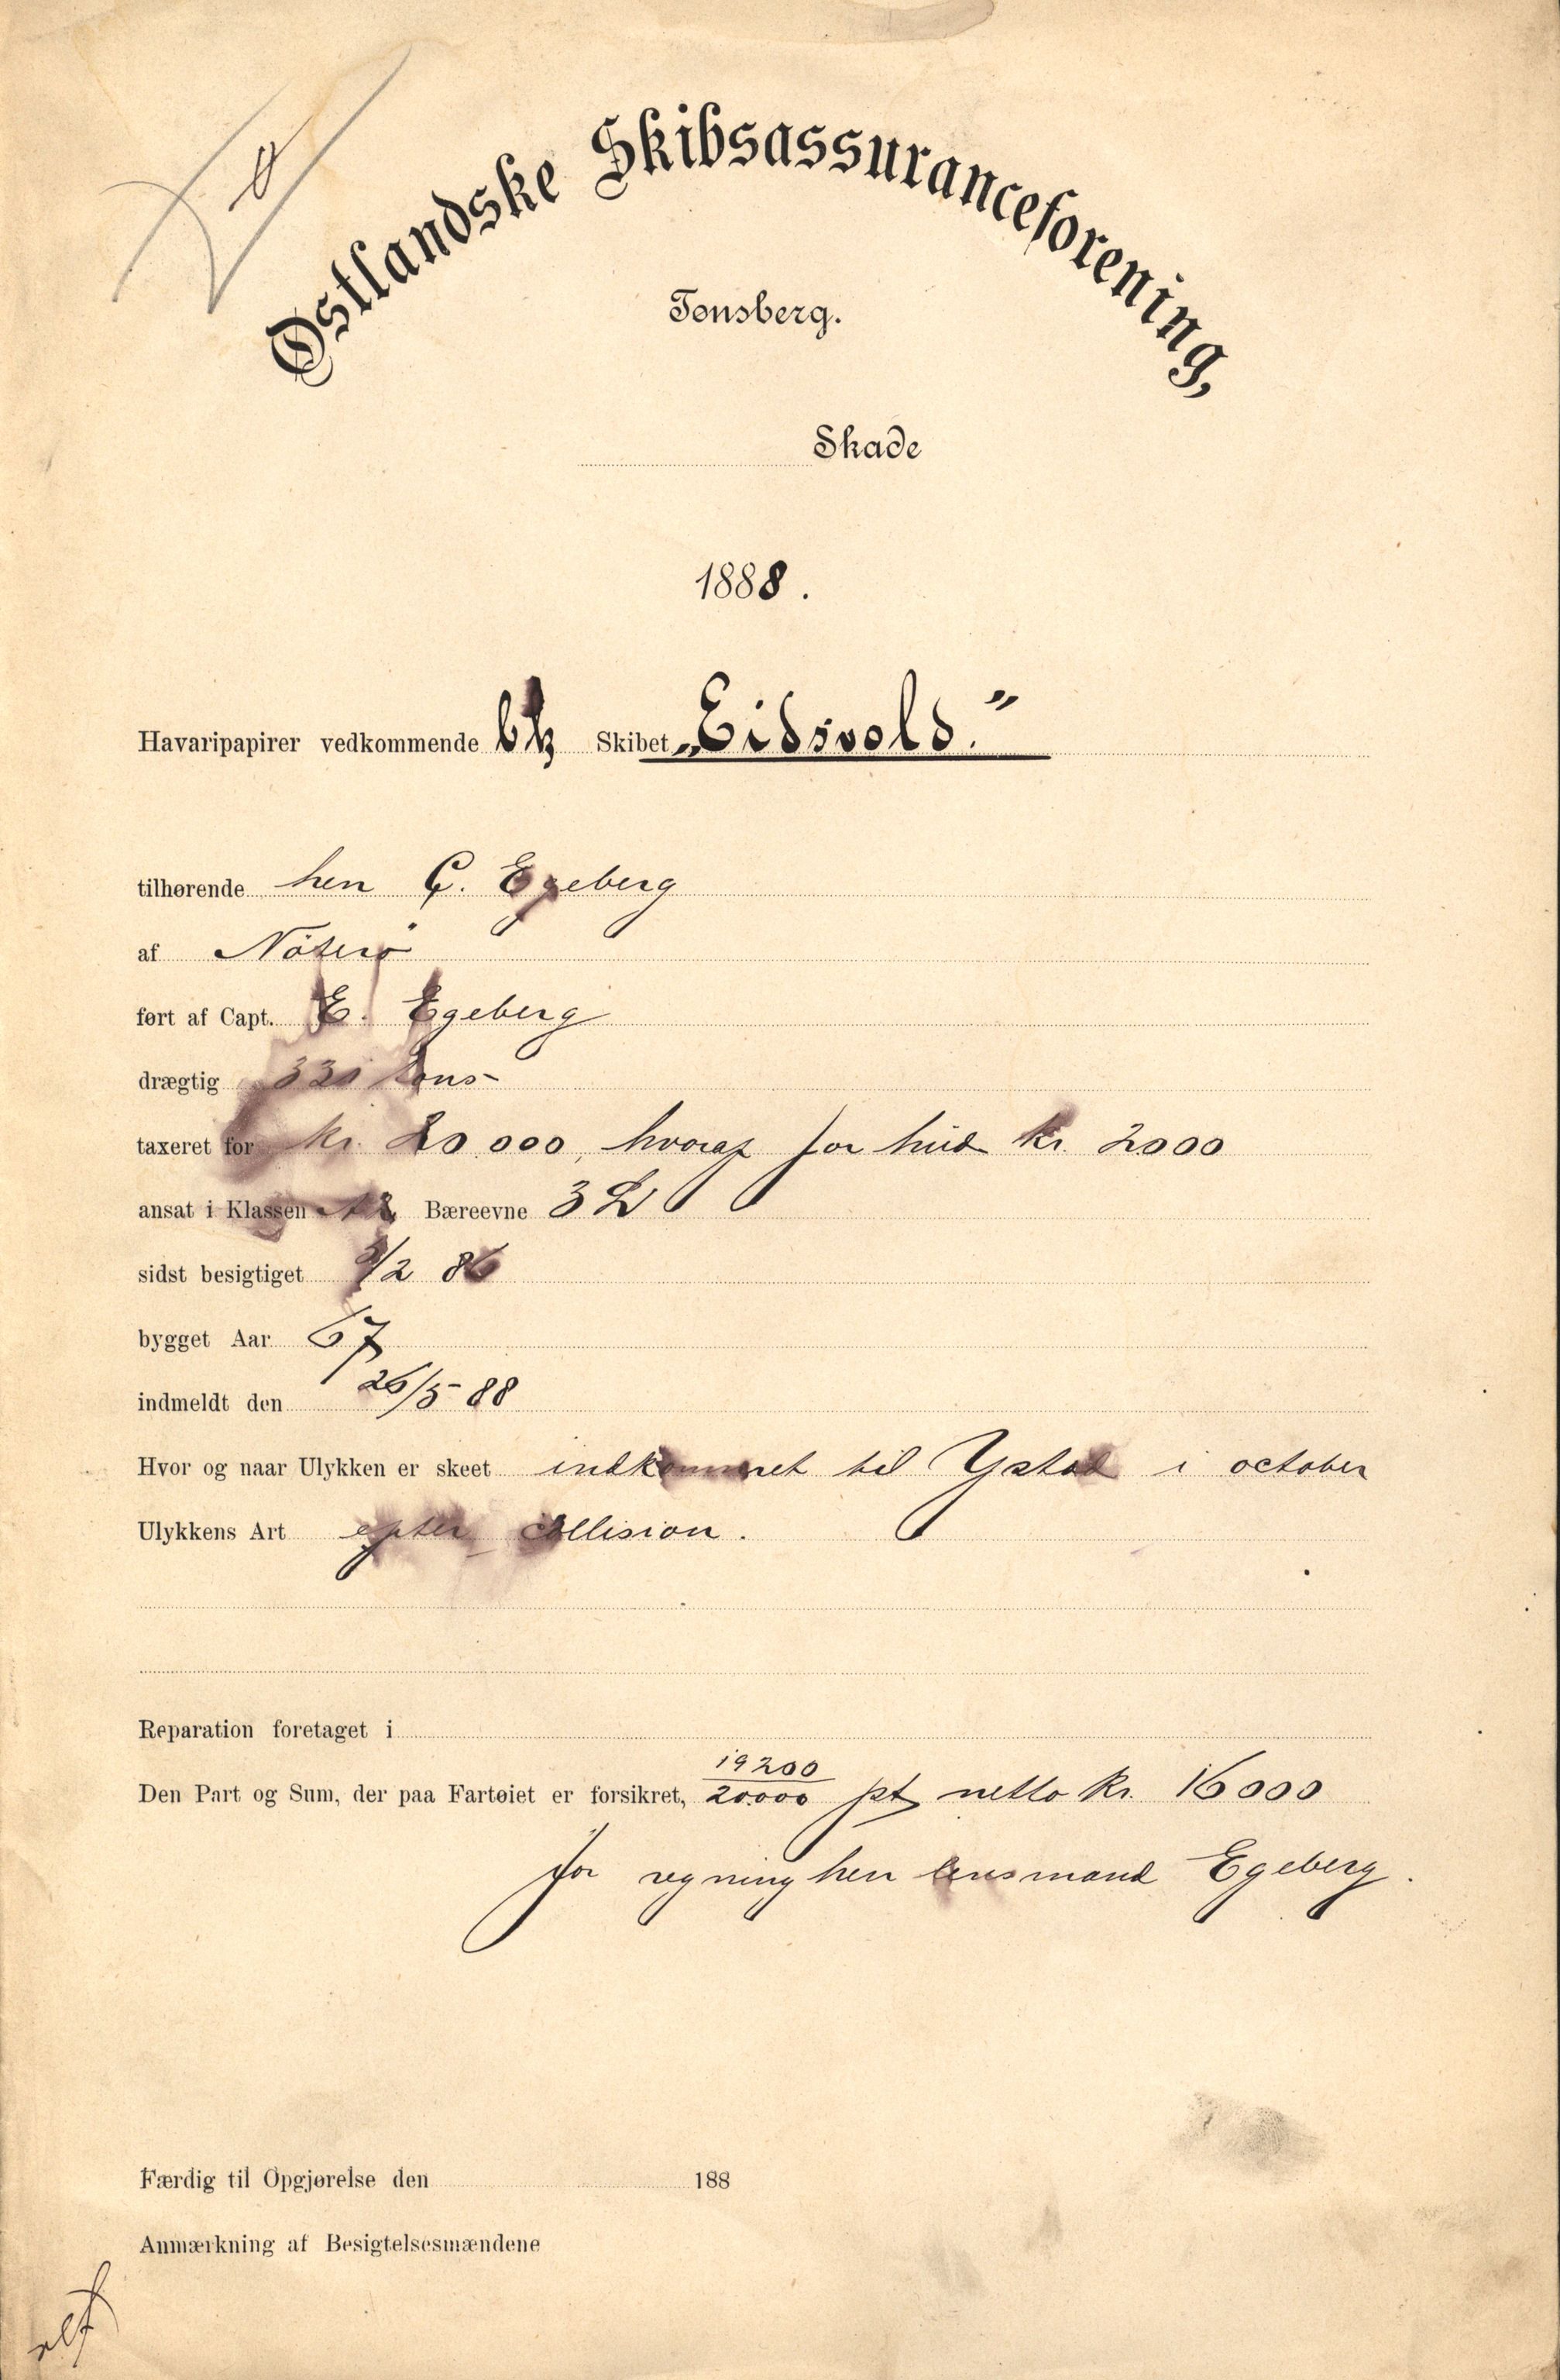 Østlandske Skibsassuranceforening,
Tønsberg.
Skade
1888.
Havaripapirer vedkommende bk Skibet „Eidsvold.“
tilhørende herr C. Egeberg
af Nøterö
ført af Capt. E. Egeberg
drægtig tons
taxeret for kr. 20.000, hvoraf for hud kr. 2000
ansat i Klassen Bæreevne 3 L
sidst besigtiget /2 86
bygget Aar 67
indmeldt den 26/5 88
Hvor og naar Ulykken er skeet indkommet til Ystad i october
Ulykkens Art efter collision.
Reparation foretaget i
Den Part og Sum, der paa Fartøiet er forsikret, 19200/20000 pt netto kr. 16000
for regning herr lensmand Egeberg.
Færdig til Opgjørelse den 188
Anmærkning af Besigtelsesmændene